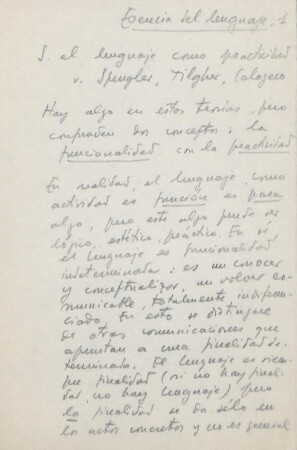 Esencia del lenguaje, 1
S. el lenguaje como practicidad
v. Spengler, Tilgher, Calogero
Hay algo en estas teorías, pero
confunden dos conceptos: la
funcionalidad con la practicidad
En realidad, el lenguaje, como
actividad es función es para
algo, pero este algo puede ser
lógico, estético, práctico. En sí,
el lenguaje es funcionalidad
indeterminada: es un conocer
y conceptualizar, un volver co-
municable, totalmente indiferen-
ciado. En esto se distingue
de otras comunicaciones que
apuntan a una finalidad de-
terminada. El lenguaje es siem-
pre finalidad (si no hay finali-
dad, no hay lenguaje) pero
la finalidad se da sólo en
los actos concretos y no es general